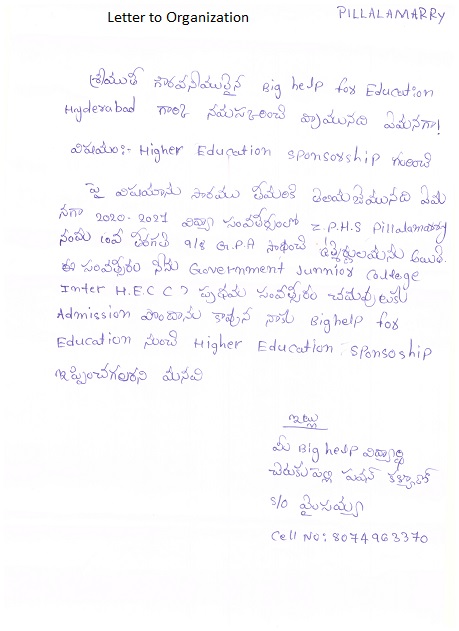 Letter to Organization
PILLALAMARRY
శ్రీయుత గౌరవనీయులైన Big help for Education
Hyderabad గారికి నమస్కరించి వ్రాయునది ఏమనగా!
విషయం:- Higher Education sponsorship గురించి
పై విషయాను సారము మీకు తెలియజేయునది ఏమ
నగా 2020-2021 విద్యా సంవత్సరంలో Z.P.H.S Pillalamarry
10వ తరగతి 9/8 G.P.A సాధించి
ఈ సంవత్సరం నేను Government Junnior College
Inter H.E.C C ప్రథమ సంవత్సరం చదువులకు
Admission పొందాను కావున నాకు Bighelp for
Education నుంచి Higher Education sponsoship
ఇప్పించగలరని మనవి
ఇట్లు
మీ Big help విద్యార్థి
చెరుకుపల్లి పవన్ కళ్యాణ్
s/o మైసయ్య
Cell No: 8074963370